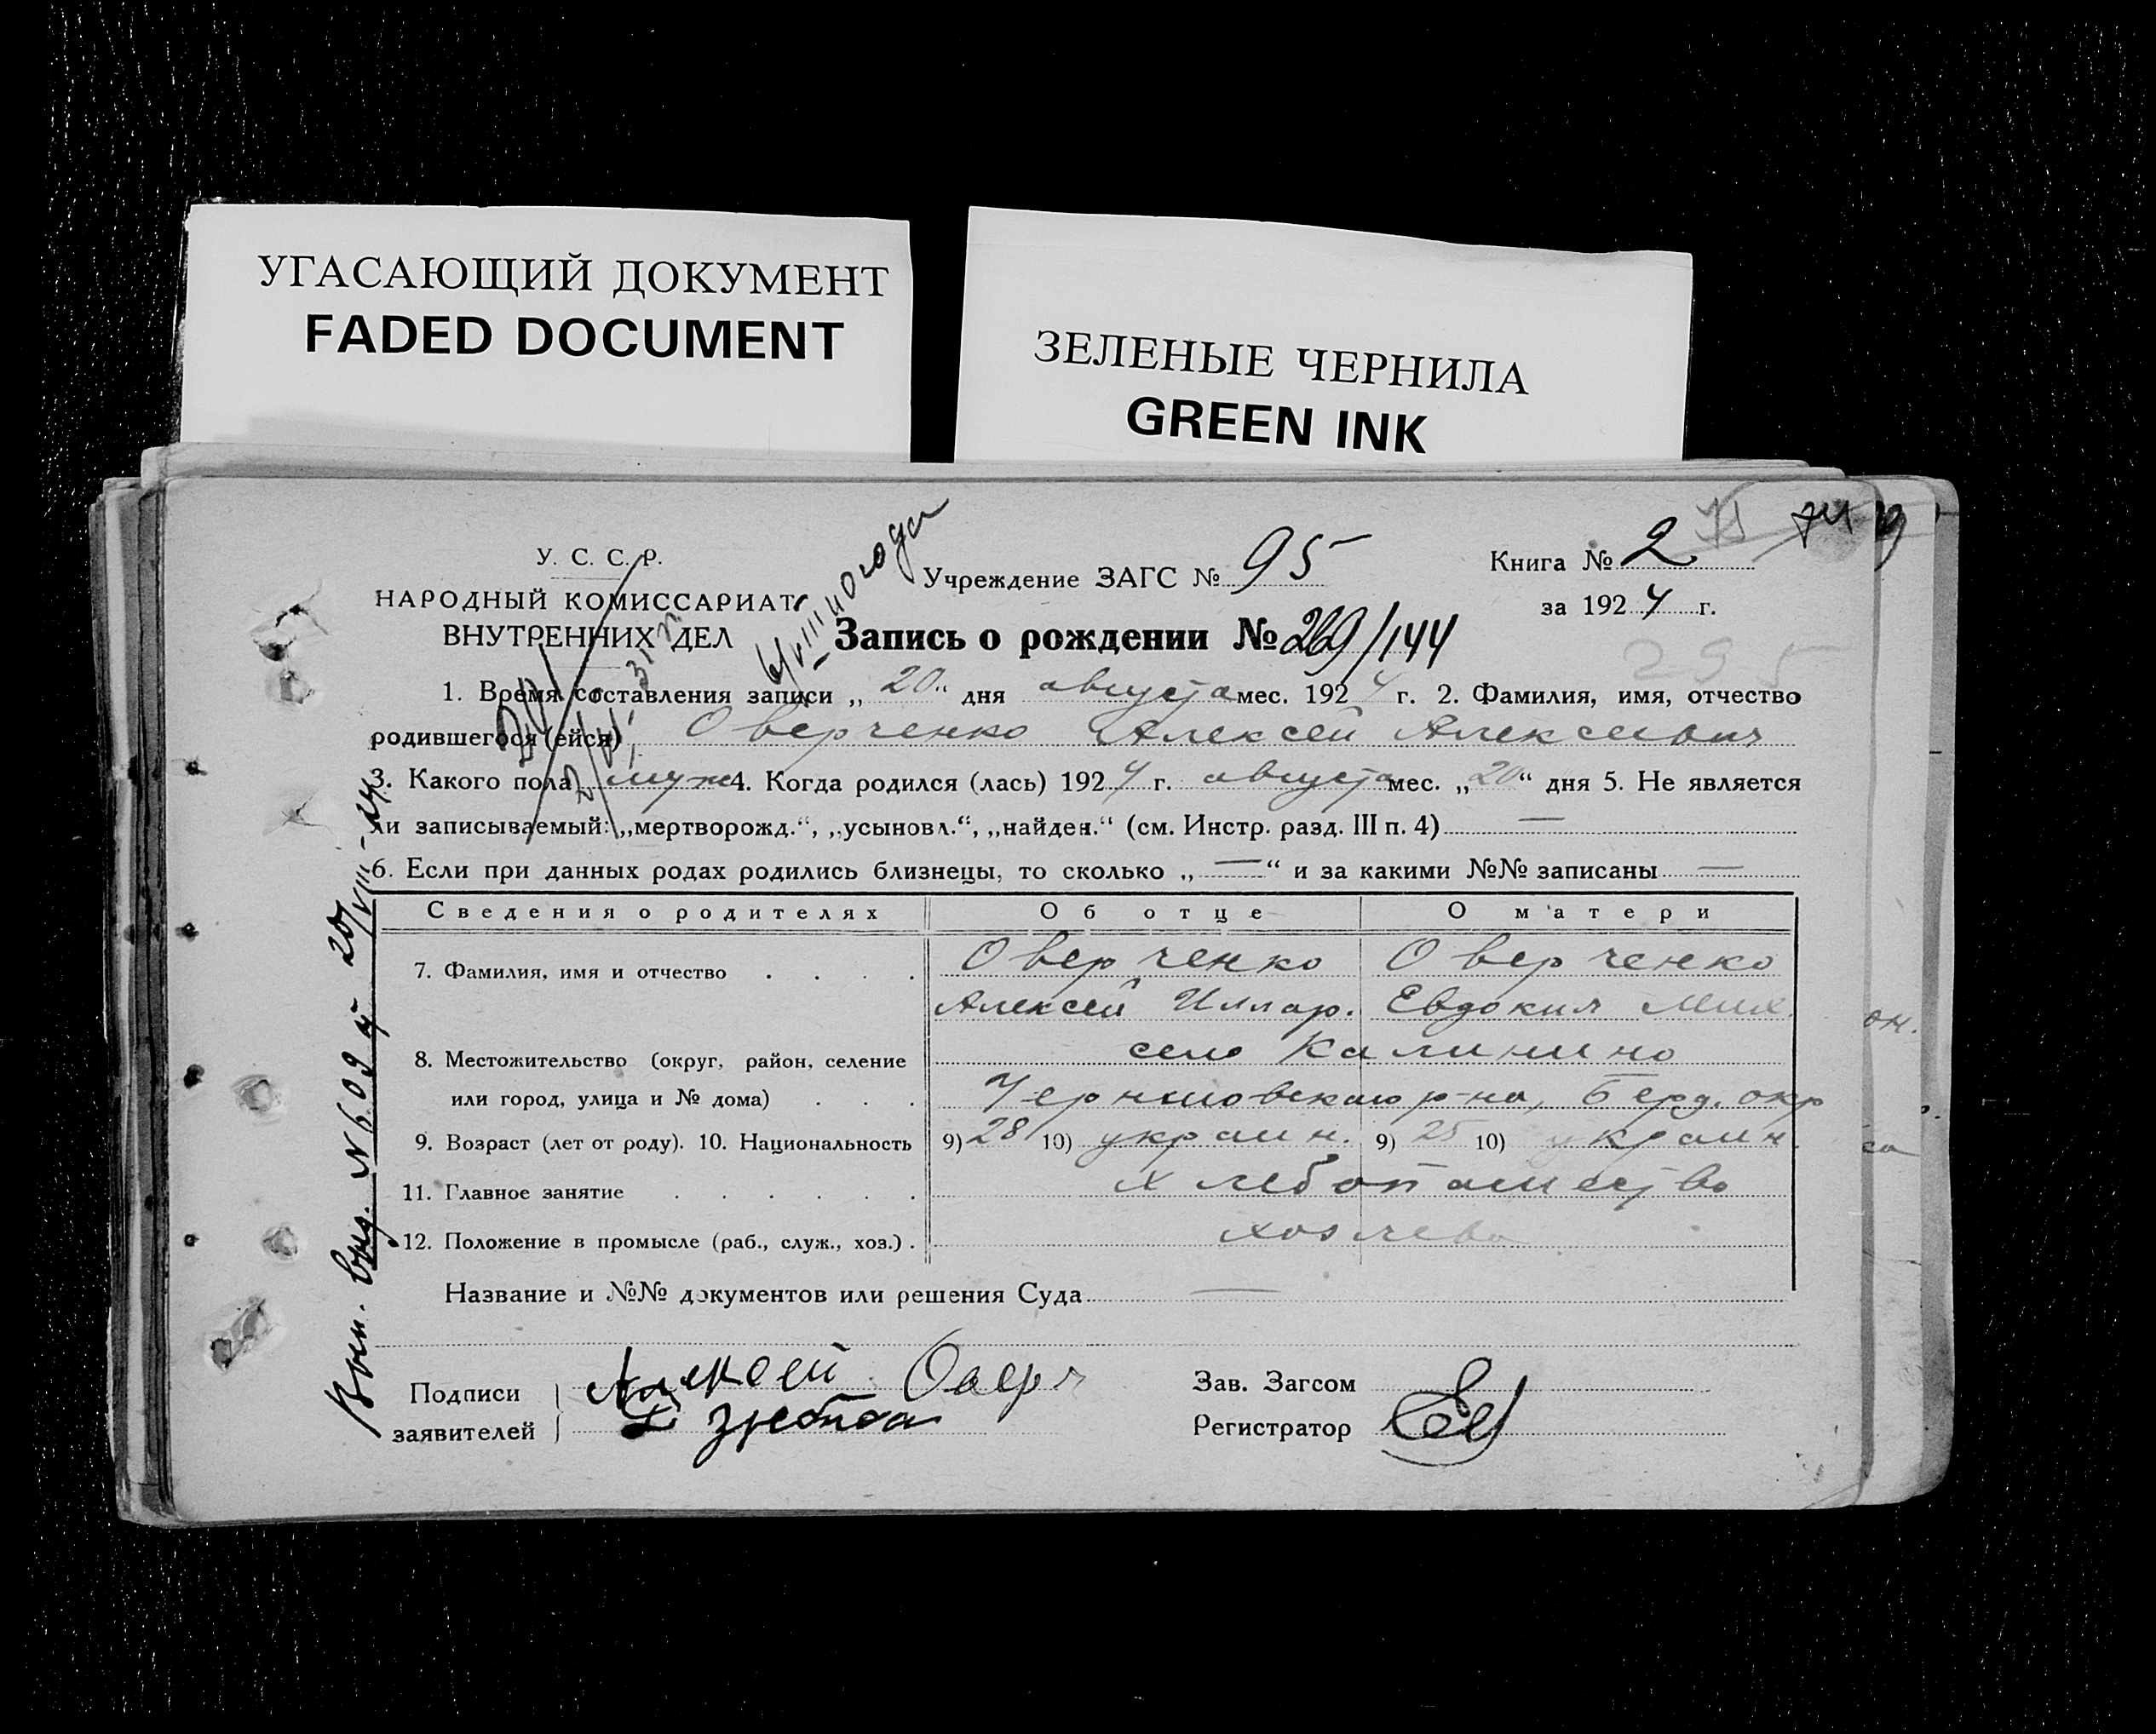 УГАСАЮЩИЙ ДОКУМЕНТ
FADED DOCUMENT
ЗЕЛЕНЫЕ ЧЕРНИЛА
GREEN INK
У. С. С. Р.
НАРОДНЫЙ КОМИССАРИАТ
ВНУТРЕННИХ ДЕЛ
Учреждение ЗАГС № 95
Книга № 2
за 1924 г.
Запись о рождении № 269/144
295
1. Время составления записи „20“ дня августа мес. 1924 г. 2. Фамилия, имя, отчество
родившегося (ейся) Оверченко Алексей Алексеевич
3. Какого пола муж 4. Когда родился (лась) 1924 г. августа мес. „20“ дня 5. Не является
ли записываемый: „мертворожд.“, „усыновл.“, „найден.“ (см. Инстр. разд. III п. 4) —
6. Если при данных родах родились близнецы, то сколько „—“ и за какими №№ записаны —
Сведения о родителях Об отце О матери
7. Фамилия, имя и отчество . . . . Оверченко Оверченко
Алексей Иллар. Евдокия Мих.
8. Местожительство (округ, район, селение село Калинино
или город, улица и № дома) . . . р-на, Берд. окр
9. Возраст (лет от роду). 10. Национальность 9) 28 10) украин. 9) 25 10) украин.
11. Главное занятие . . . . . . хлебопашество
12. Положение в промысле (раб., служ., хоз.) . хозяева
Название и №№ документов или решения Суда —
Подписи
заявителей
Алексей Оверч
Зав. Загсом
Регистратор